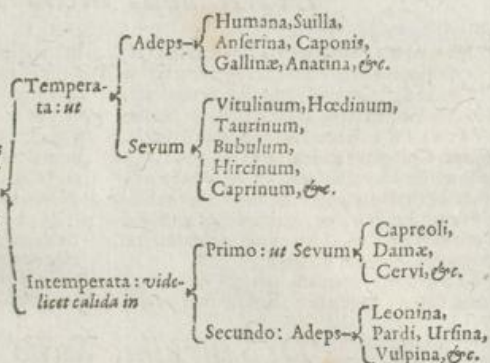 Tempera-
ta: ut
Adeps
Humana, Suilla,
Anſerina, Caponis,
Gallinæ, Anatina, &c.
Sevum
Vitulinum, Hœdinum,
Taurinum,
Bubulum,
Hircinum,
Caprinum, &c.
Intemperata: vide-
licet calida in
Primo: ut Sevum
Capreoli,
Damæ,
Cervi, &c.
Secundo: Adeps
Leonina,
Pardi, Urſina,
Vulpina, &c.